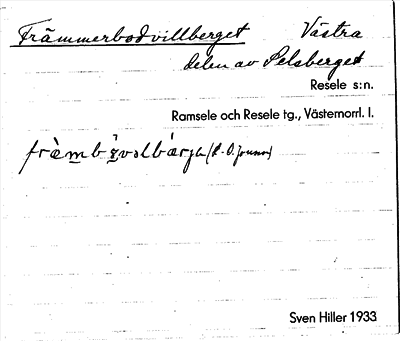 Främmerbodvillberget Västra
delen av Selsberget
Resele s:n.
Ramsele och Resele tg., Västernorrl. l.
Sven Hiller 1933